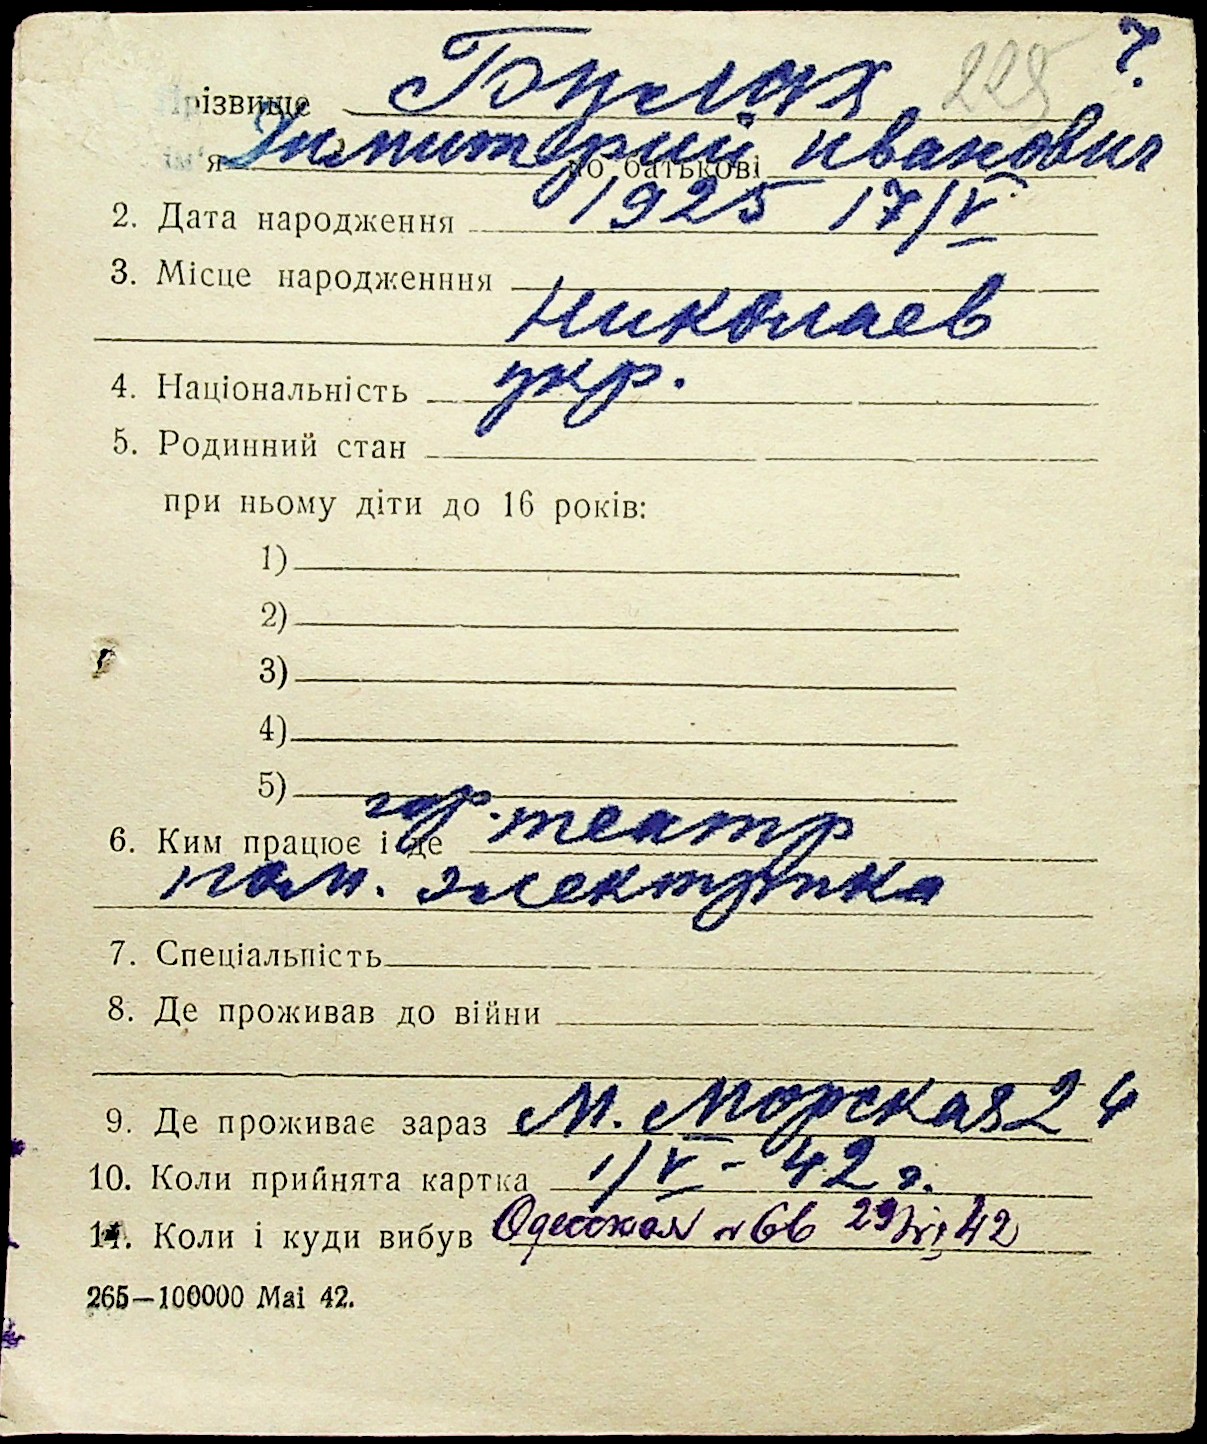 різвище Булах 225 7.
ім'я Дмитерий по батькові Иванович
2. Дата народження 1925 17/V
3. Місце народженння
Николаев
4. Національність укр.
5. Родинний стан
при ньому діти до 16 років:
1)
2)
3)
4)
5)
6. Ким працює і де гор. театр
пом. электрика
7. Спеціальність
8. Де проживав до війни
9. Де проживає зараз М. Морская 24
10. Коли прийнята картка 1/V - 42 г.
11. Коли і куди вибув Одесская № 66 29/VI 42
265—100000 Mai 42.